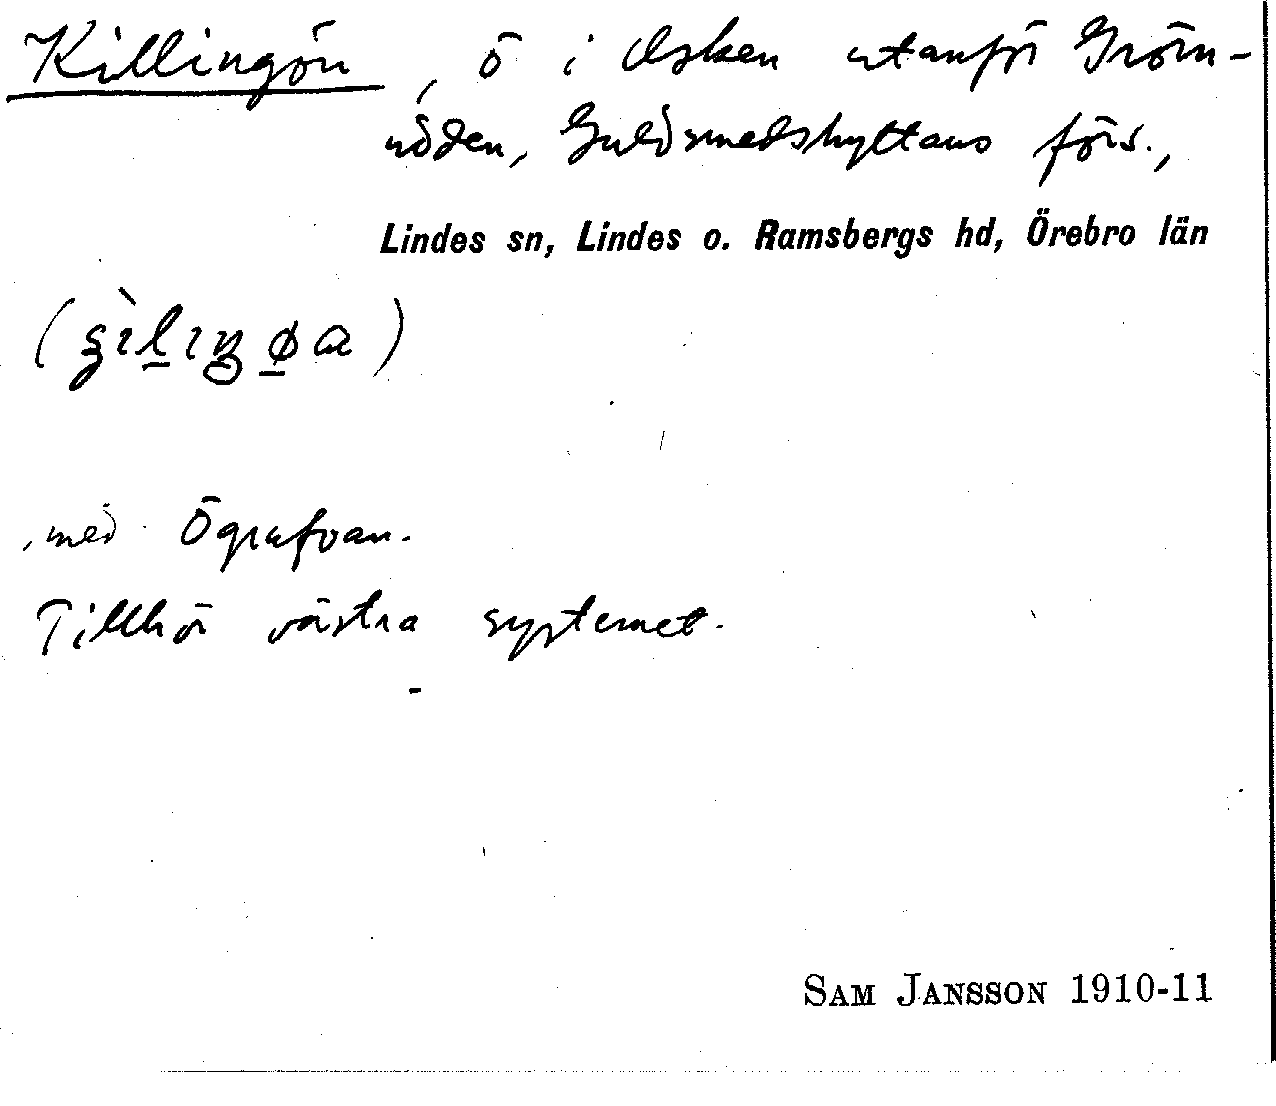 Killingön, ö i Usken utanför Gröm-
nöden, Guldsmedshyttans förs.,
Lindes sn, Lindes o. Ramsbergs hd, Örebro län
, med Ögrafvan.
Tillhör västra systemet.
SAM JANSSON 1910-11